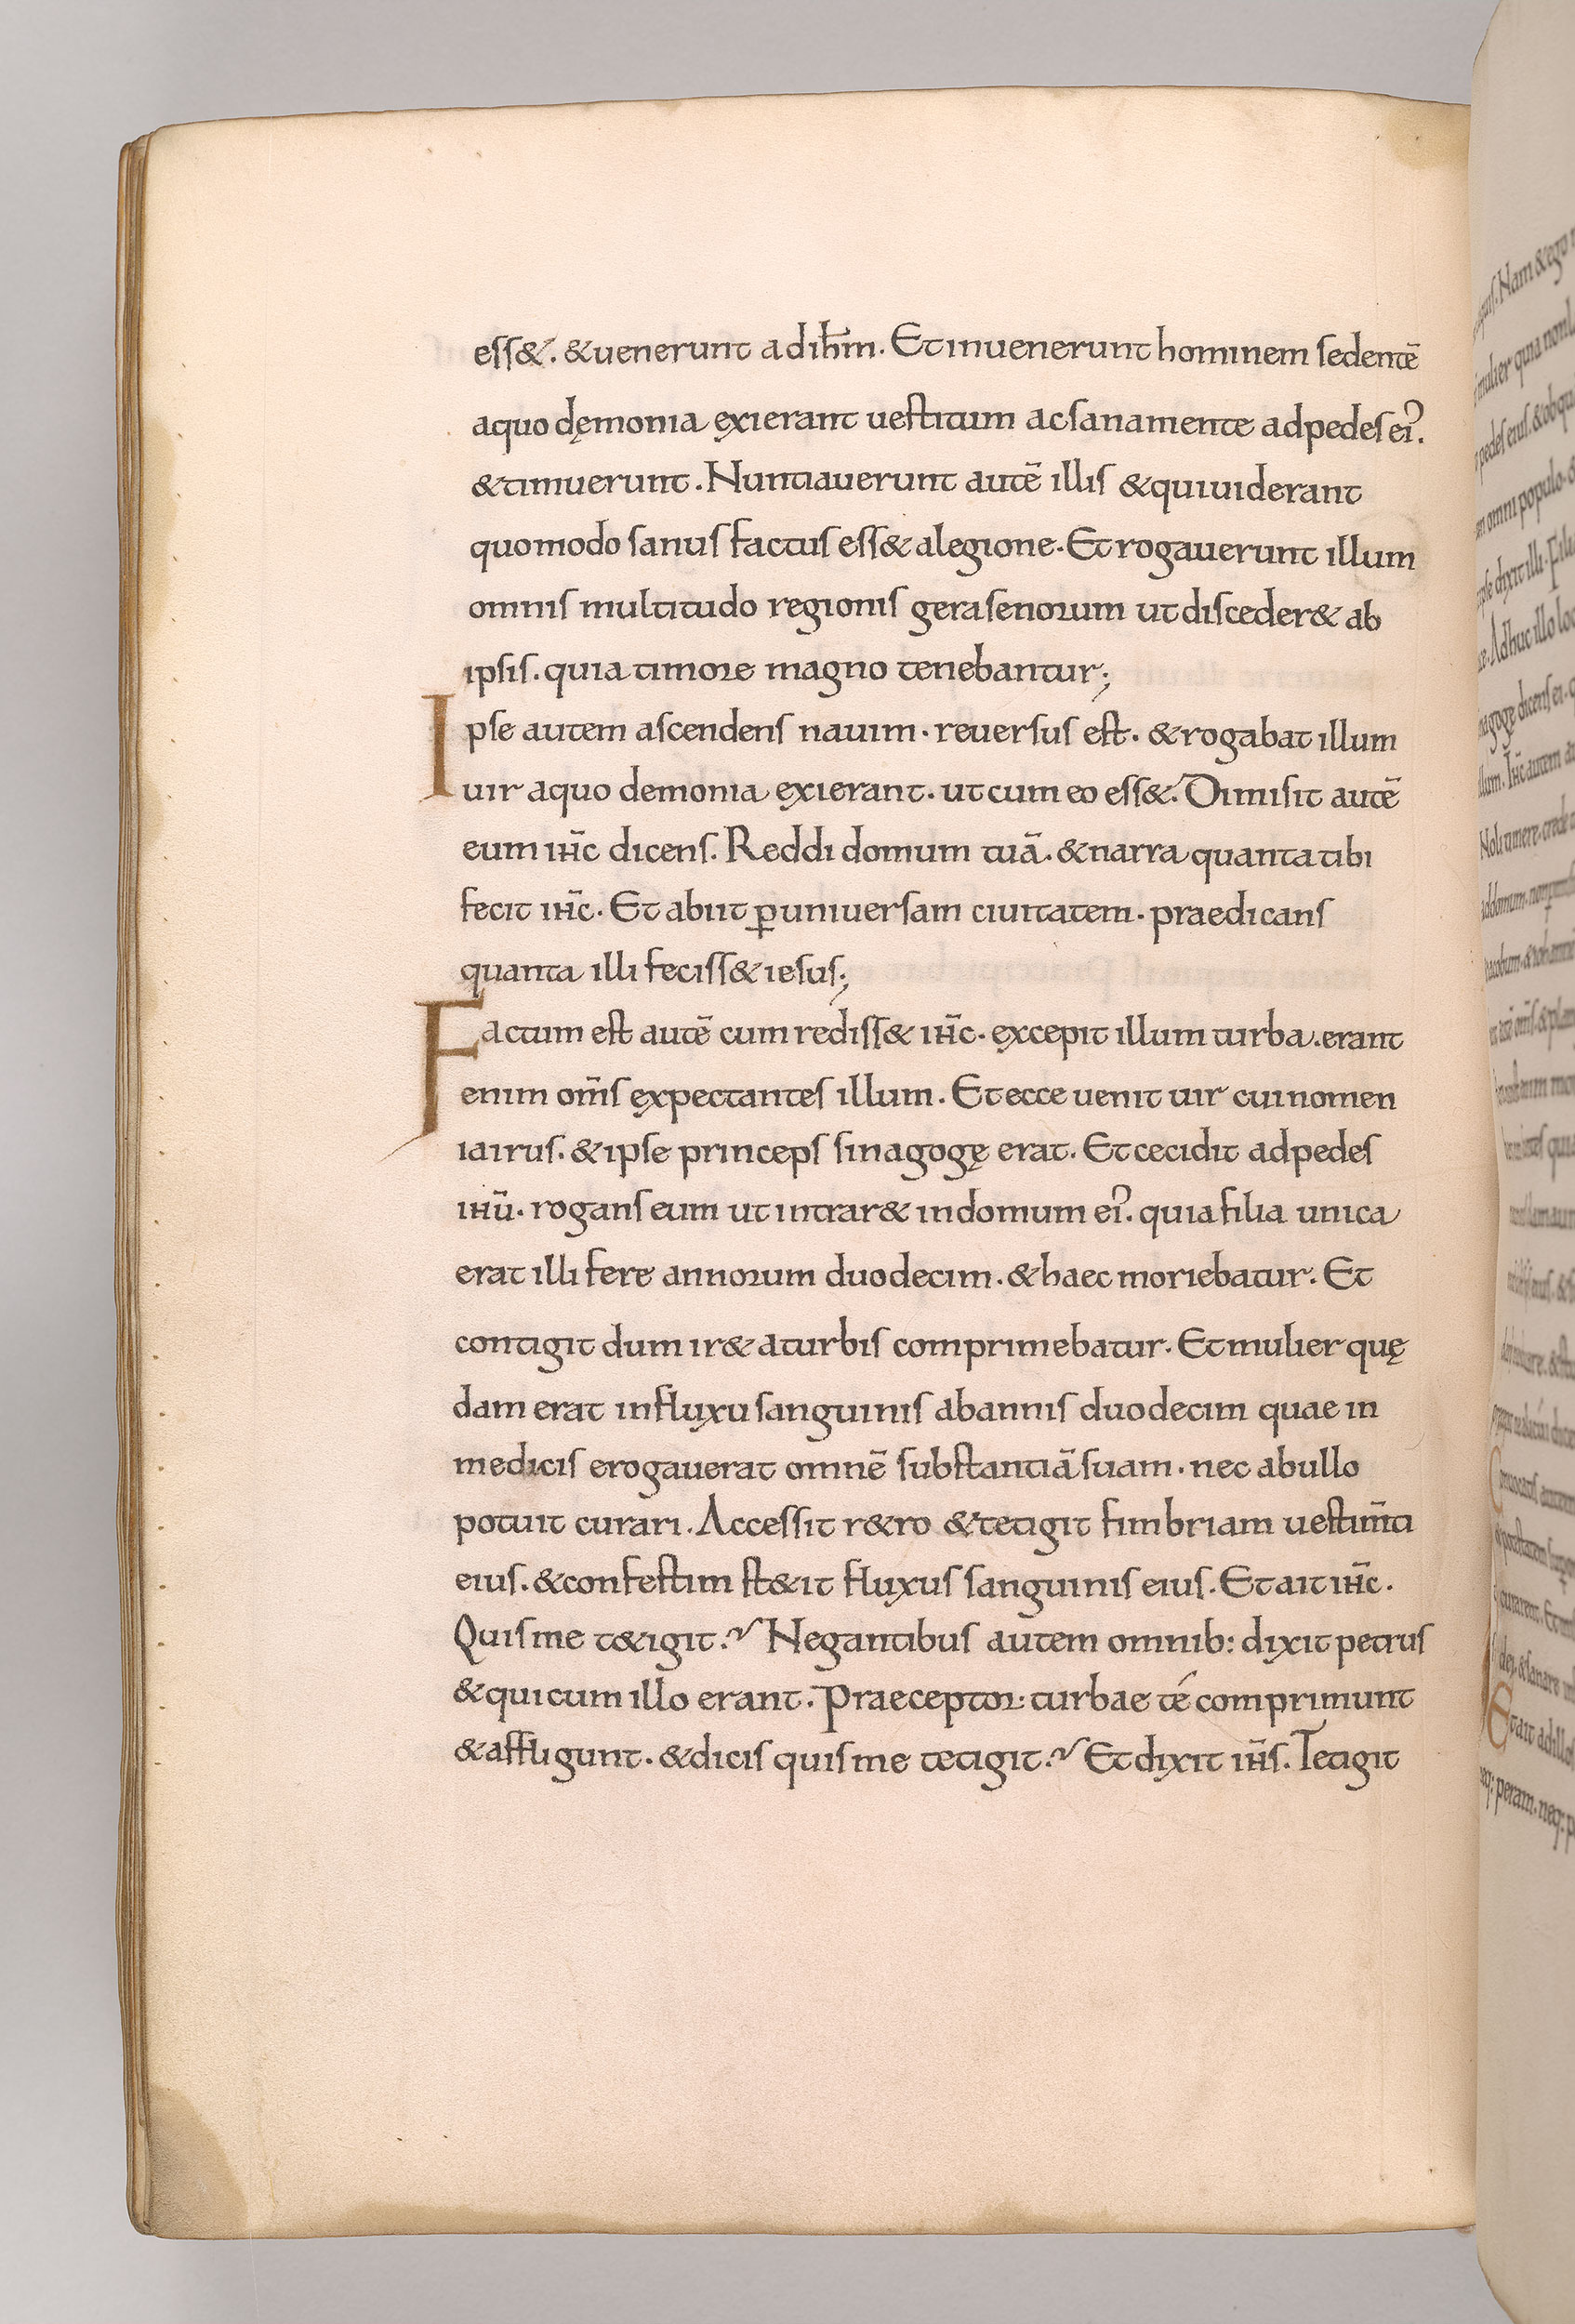 ess&. & uenerunt ad ih̅m. Et inuenerunt hominem sedentē
aquo dęmonia exierant uestitum ac sana mente ad pedes ei᾿.
& timuerunt. Nuntiauerunt autē illis & qui uiderant
quomodo sanus factus ess& alegione. Et rogauerunt illum
omnis multitudo regionis gerasenorum ut disceder& ab
ipsis. quia timore magno tenebantur;
Ipse autem ascendens nauim. reuersus est. & rogabat illum
uir aquo demonia exierant. ut cum eo ess&. Dimisit autē
eum ih̅c dicens. Reddi domum tuā. & narra quanta tibi
fecit ih̅c. Et abiit ꝑ uniuersam ciuitatem. praedicans
quanta illi feciss& iesus;
Factum est autē cum rediss& ih̅c. excepit illum turba. erant
enim om̅s expectantes illum. Et ecce uenit uir cui nomen
iairus. & ipse princeps sinagogę erat. Et cecidit ad pedes
ihū. rogans eum ut intrar& in domum ei᾿. quia filia unica
erat illi fere annorum duodecim. & haec moriebatur. Et
contigit dum ir& aturbis comprimebatur. Et mulier quę
dam erat in fluxu sanguinis ab annis duodecim quae in
medicis erogauerat omnē substantiā suam. nec ab ullo
potuit curari. Accessit r&ro & tetigit fimbriam uestim̅ti
eius. & confestim st&it fluxus sanguinis eius. Et ait ih̅c.
Quis me t&igit? Negantibus autem omnib: dixit petrus
& qui cum illo erant. Praeceptor. turbae té comprimunt
& affligunt. & dicis quis me tetigit? Et dixit ih̅s. Tetigit